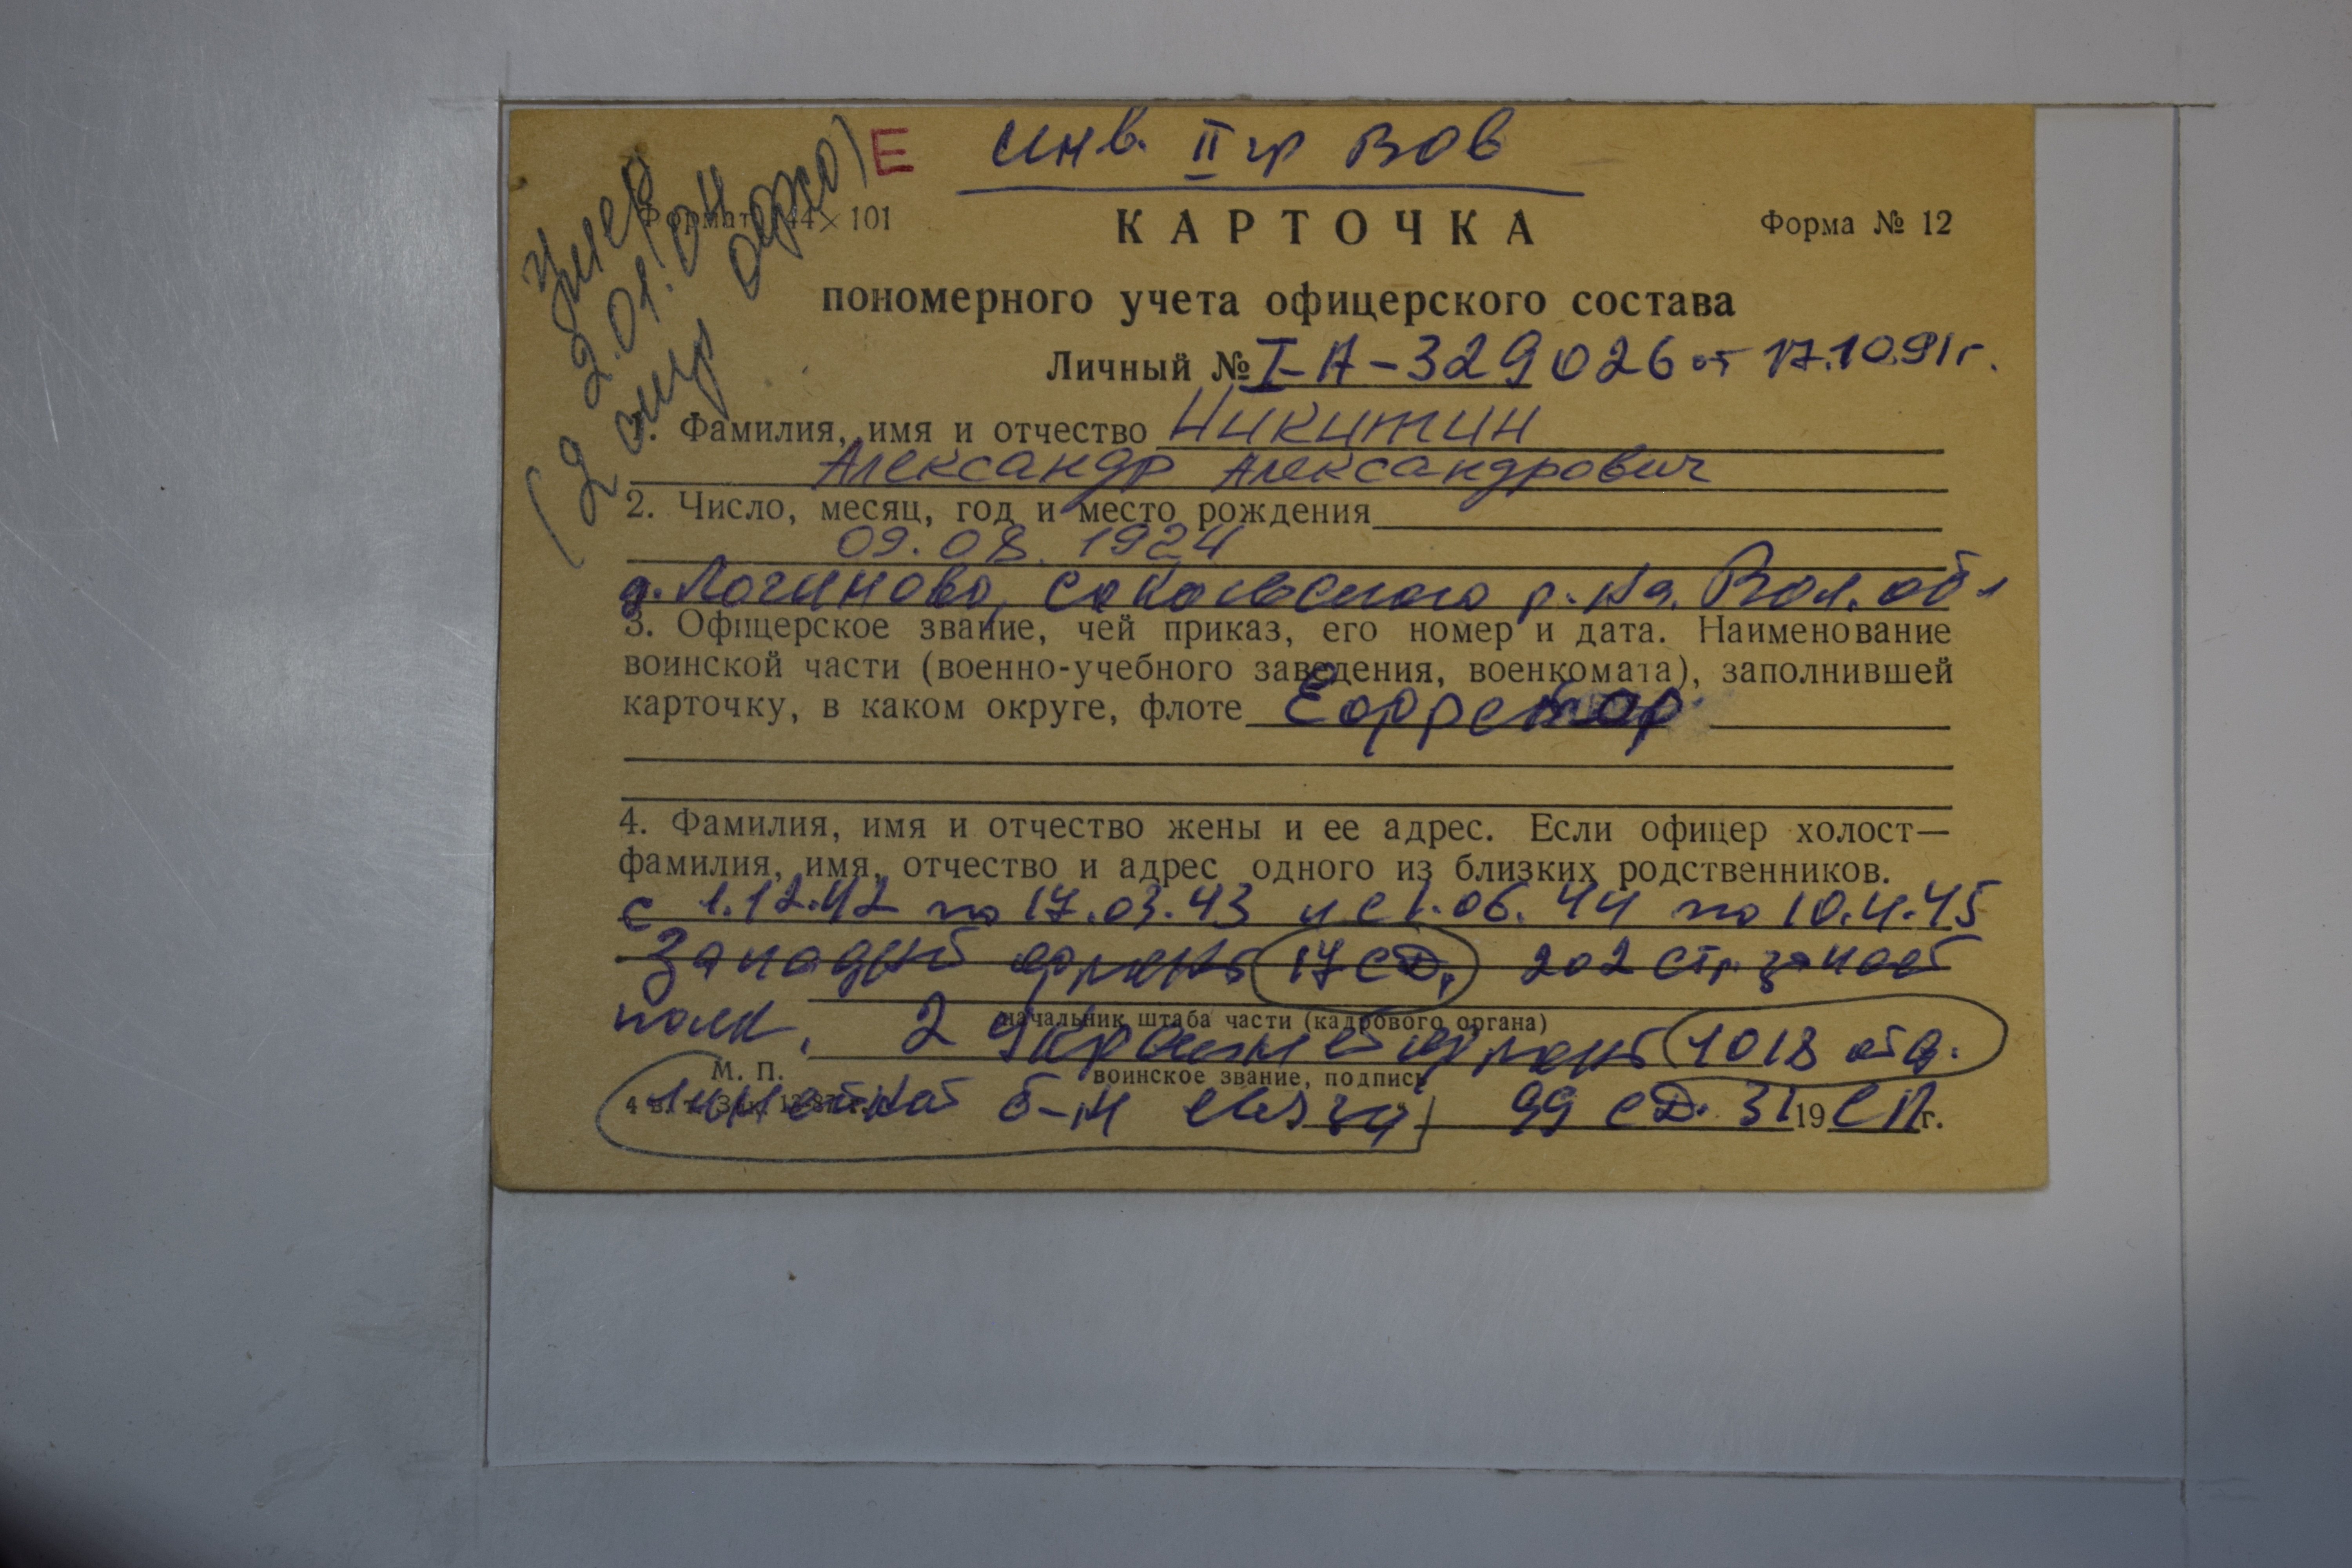 Е
инв. II гр ВОВ
умер
2.01.04
Формат 74×101
КАРТОЧКА
Форма № 12
пономерного учета офицерского состава
Личный № I-А-329026 от 17.10.91г.
1. Фамилия, имя и отчество Никитин
Александр Александрович
2. Число, месяц, год и место рождения
09.08.1924
д. Логиново, Сокольского р-на, Вол. обл
3. Офицерское звание, чей приказ, его номер и дата. Наименование
воинской части (военно-учебного заведения, военкомата), заполнившей
карточку, в каком округе, флоте Ефрейтор
4. Фамилия, имя и отчество жены и ее адрес. Если офицер холост—
фамилия, имя, отчество и адрес одного из близких родственников.
с 1.12.42 по 17.03.43 и с 1.06.44 по 10.4.45
Западный фронт 17 СД, 202 стр. запасной
полк, 2 Украинский фронт 1018 отд.
начальник штаба части (кадрового органа)
М. П.
воинское звание, подпись
линейный б-н связи 99 СД. 31 СП
19 г.